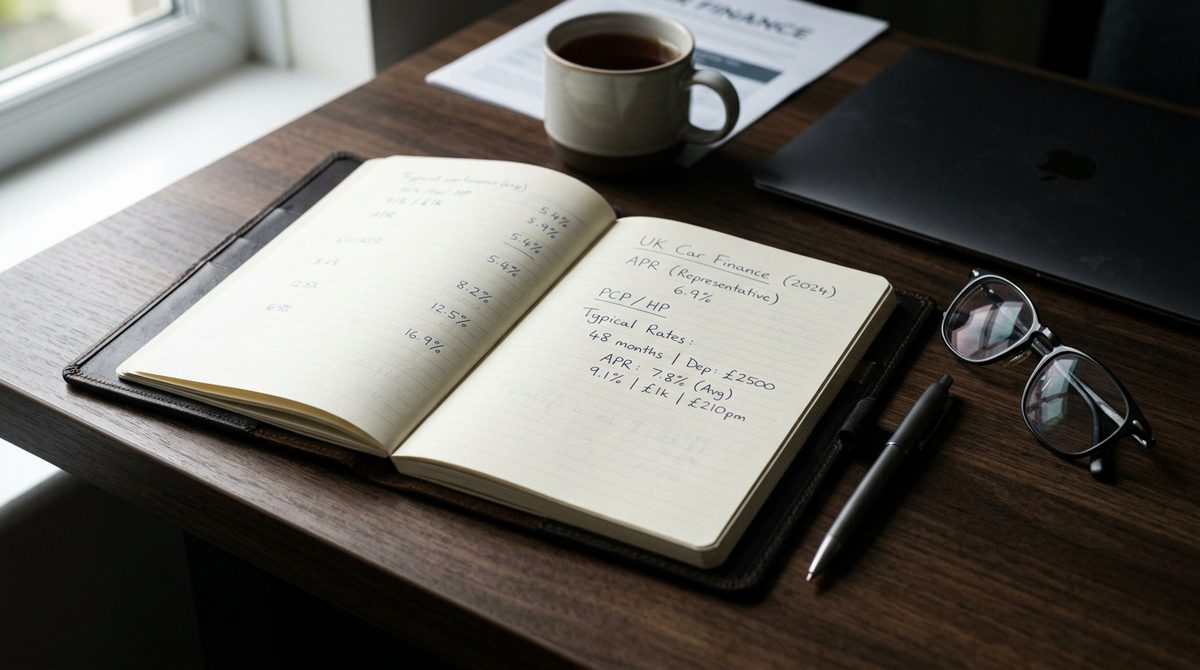 FINANCE
Typical car finance (Avg)
APR
5.4%
5.9%
5.4%
5.4%
8.2%
12.5%
16.9%
UK Car Finance (2024)
APR (Representative)
6.9%
PCP/HP
Typical Rates:
48 months | Dep: £2500
APR: 7.8% (Avg)
9.1% | £1k | £210pm